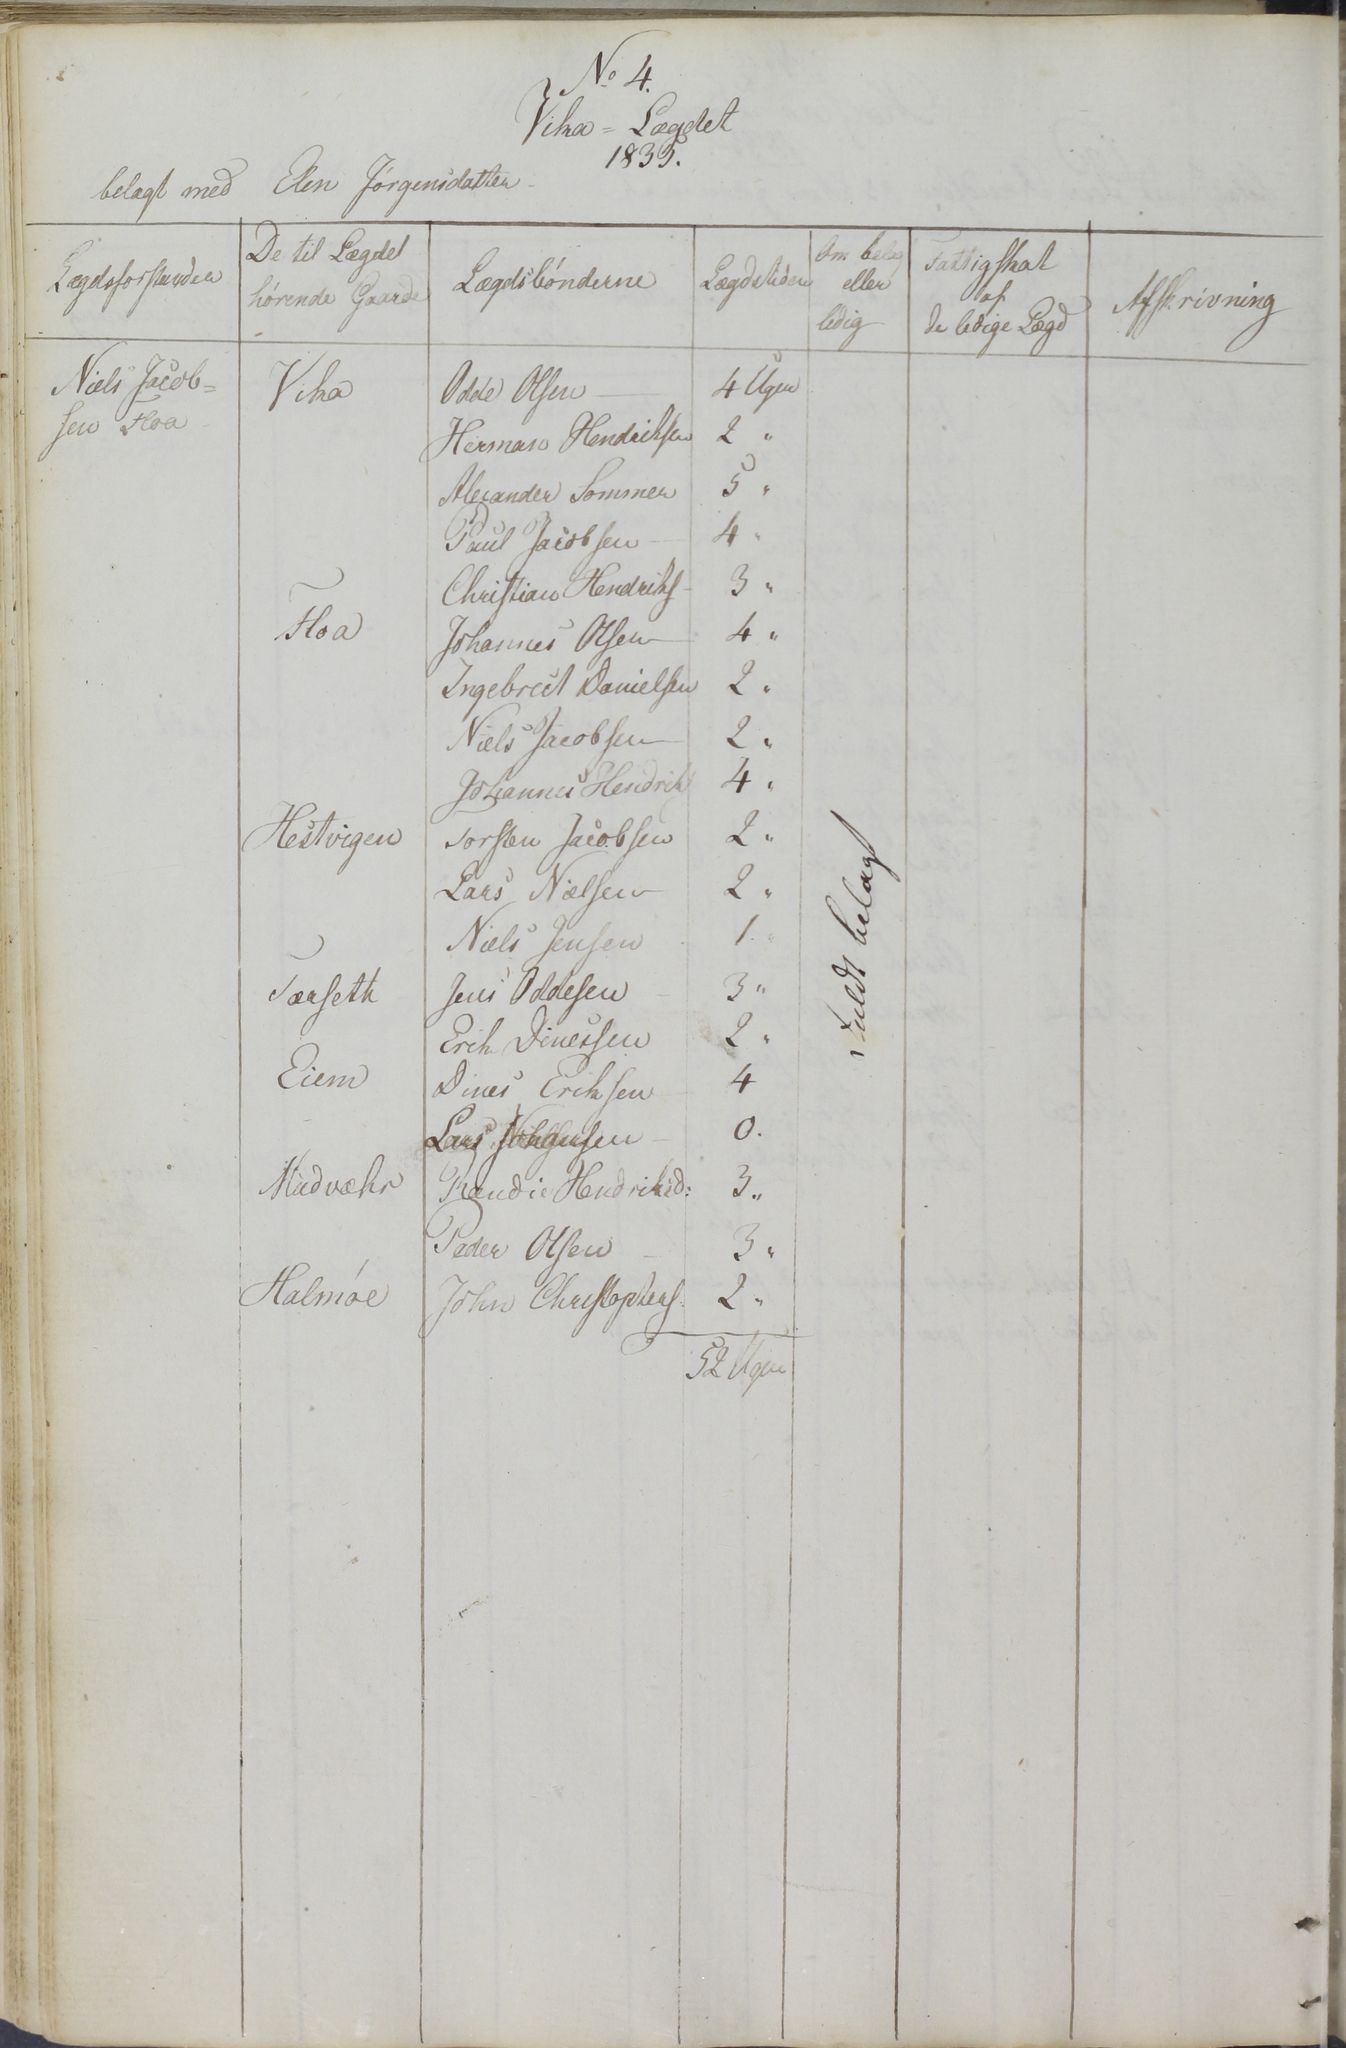 No 4.
Vika = Lægdet
1835.
belagt med Elen Jørgensdatter
Lægdsforstander | De til Lægdet hørende Gaarde | Lægdsbønderne | Lægdstiden | Om belag eller ledig | Fattigskat af de ledige Lægd | Afskrivning
Niels Jacob= | Vika | Odde Olsen | 4 Uger
sen Floa | Herman Hendriksen | 2 "
Alexander Sommer | 5 "
Paul Jacobsen | 4 "
Christian Hendriks | 3 "
Floa | Johannes Olsen | 4 "
Ingebrect Danielsen | 2 "
Niels Jacobsen | 2 "
Johannes Hendrik | 4 "
Hestvigen | Torsten Jacobsen | 2 "
Lars Nielsen | 2 "
Niels Jensen | 1 "
Tærseth | Jens Oddesen | 3 "
Erik Dinessen | 2 "
Eiem | Dines Eriksen | 4
Lars Johansen | 0.
Madvæhr | Randie Hendriksd: | 3 "
Peder Olsen | 3 "
Halmøe | John Christophers | 2 "
52 Uger
Fuldt belagt